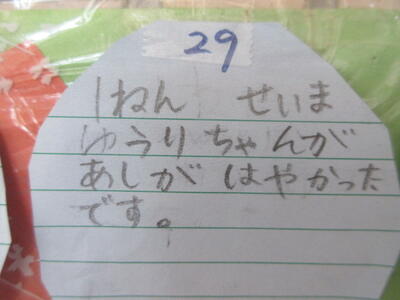 29
1ねん せいま
ゆうりちゃんが
あしが はやかった
です。